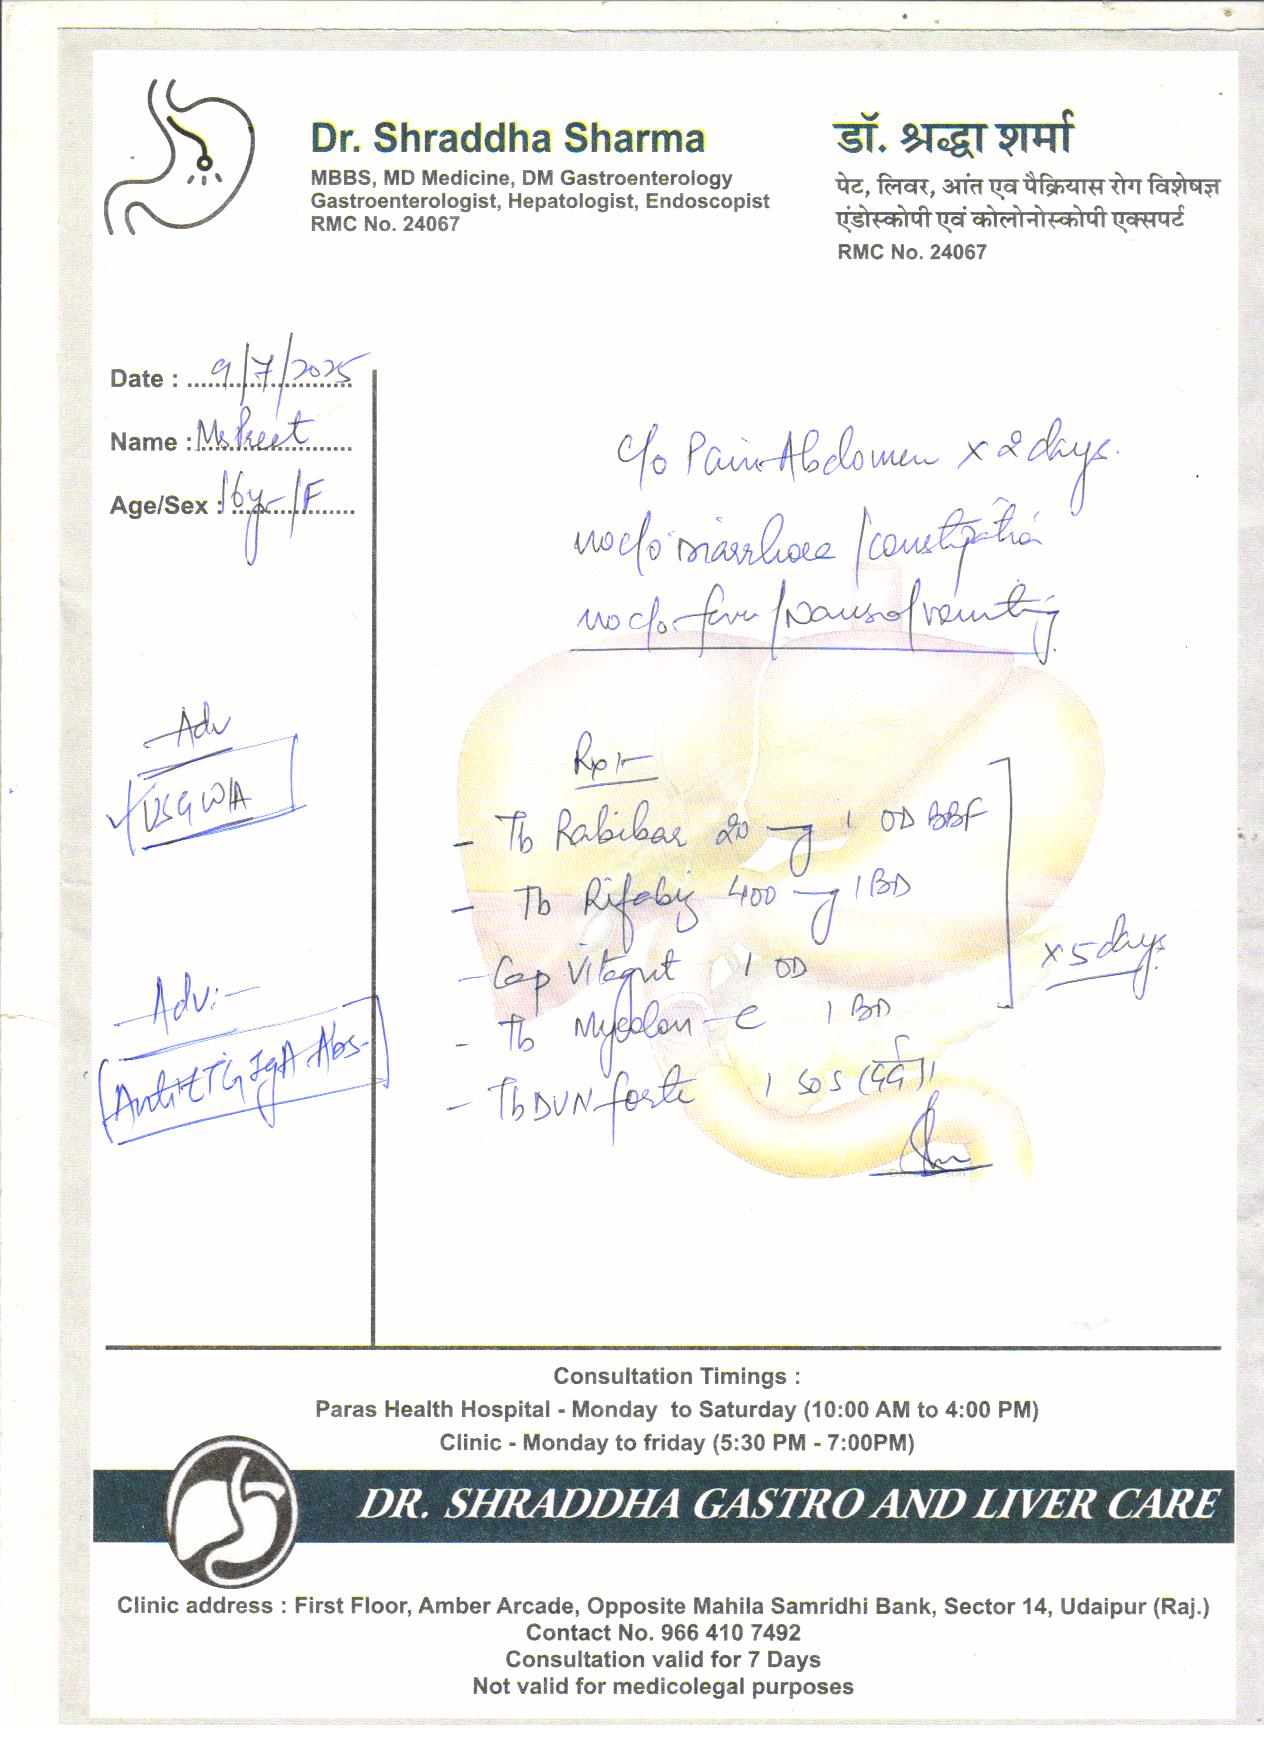 Dr. Shraddha Sharma
MBBS, MD Medicine, DM Gastroenterology
Gastroenterologist, Hepatologist, Endoscopist
RMC No. 24067
डॉ. श्रद्धा शर्मा
पेट, लिवर, आंत एव पैक्रियास रोग विशेषज्ञ
एंडोस्कोपी एवं कोलोनोस्कोपी एक्सपर्ट
RMC No. 24067
Date : 9/7/2025
Name : Ms Preet
Age/Sex : 16y/F
c/o Pain Abdomen x 2 days.
no c/o Diarrhoea / constipation
no c/o fever / Nausea / vomiting
Adv
USG W/A
Adv:-
Anti tTG IgA Abs
Rx:-
- Tb Rabibar 20 mg 1 OD BBF
- Tb Rifabiz 400 mg 1 BD
- Cap Vitagut 1 OD
- Tb Mycolon-C 1 BD
x 5 days
- Tb DVN forte 1 SOS (दर्द)
Consultation Timings :
Paras Health Hospital - Monday to Saturday (10:00 AM to 4:00 PM)
Clinic - Monday to friday (5:30 PM - 7:00PM)
DR. SHRADDHA GASTRO AND LIVER CARE
Clinic address : First Floor, Amber Arcade, Opposite Mahila Samridhi Bank, Sector 14, Udaipur (Raj.)
Contact No. 966 410 7492
Consultation valid for 7 Days
Not valid for medicolegal purposes